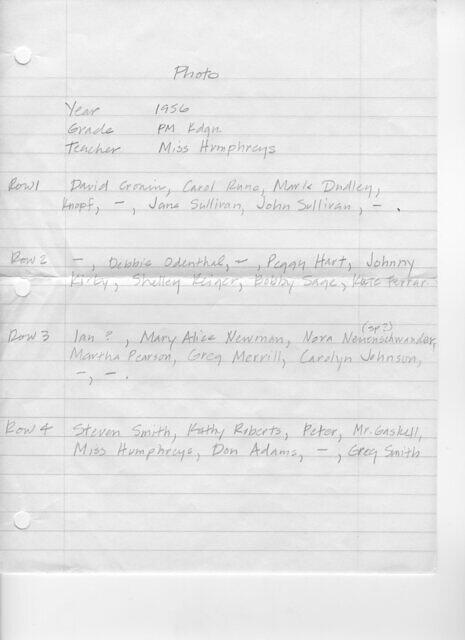 Photo
Year 1956
Grade PM Kdgn.
Teacher Miss Humphreys
Row 1 David Cronin, Carol Rune, Mark Dudley,
Knopf, –, Jane Sullivan, John Sullivan, –.
Row 2 –, Debbie Odenthal, –, Peggy Hart, Johnny
Kirby, Shelley Reiger, Bobby Sage, Kate Ferrar
(sp?)
Row 3 Ian ?, Mary Alice Newman, Nora Nenenschwander,
Martha Pearson, Greg Merrill, Carolyn Johnson,
–, –.
Row 4 Steven Smith, Kathy Roberts, Peter, Mr. Gaskell,
Miss Humphreys, Don Adams, –, Greg Smith